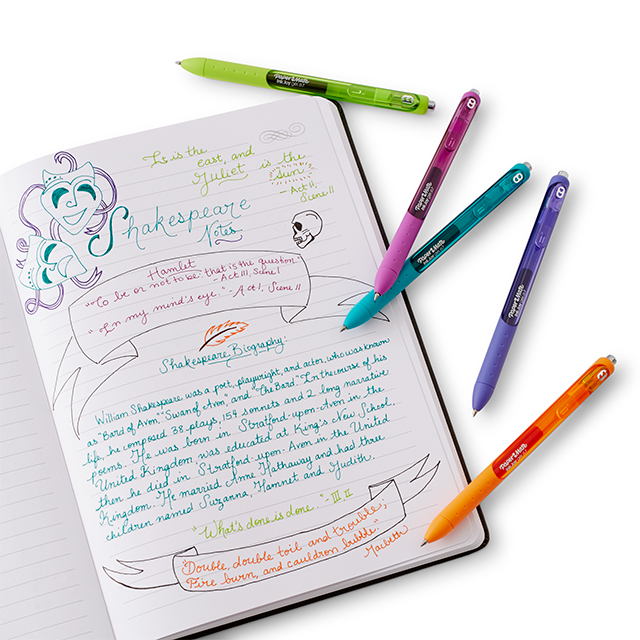 It is the
east, and
Juliet is the
"sun"
- Act II,
Scene II
Shakespeare
Notes
Hamlet
"To be or not to be: that is the question"
- Act III, Scene I
"In my mind's eye." - Act I, Scene II
Shakespeare Biography:
William Shakespeare was a poet, playwright, and actor, who was known
as "Bard of Avon" "Swan of Avon" and "The Bard". In the course of his
life, he composed 38 plays, 154 sonnets and 2 long narrative
poems. He was born in Stratford-upon-Avon in the
United Kingdom was educated at King's New School.
then he died in Stratford-upon-Avon in the United
Kingdom. He married Anne Hathaway and had three
children named Suzanna, Hamnet and Judith.
"What's done is done." - III, II
"Double, double toil and trouble;
Fire burn, and cauldron bubble."
Macbeth
PaperMate
InkJoy Gel 0.7
PaperMate
InkJoy Gel 0.7
PaperMate
InkJoy Gel 0.7
PaperMate
InkJoy Gel 0.7
PaperMate
InkJoy Gel 0.7